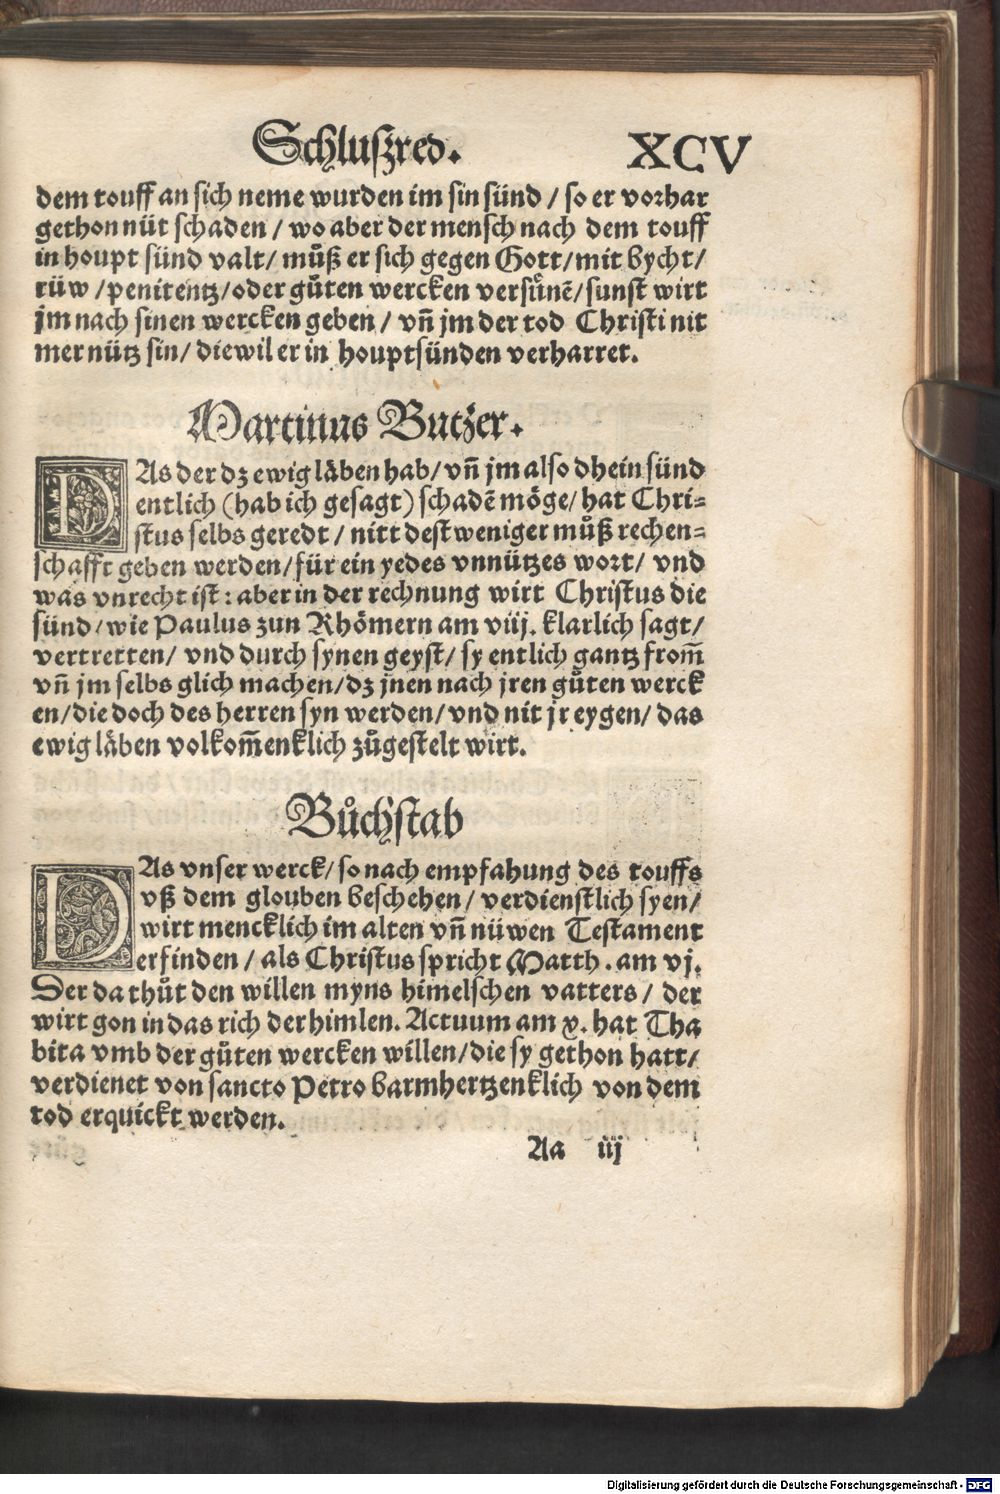 Schluſzred. XCV
dem touff an sich neme wurden im sin sünd / so er vorhar
gethon nüt schaden / wo aber der mensch nach dem touff
in houpt sünd valt / muͦß er sich gegen Gott / mit bycht /
rüw / penitentz / oder guͦten wercken versuͤnẽ / sunst wirt
jm nach sinen wercken geben / vñ jm der tod Christi nit
mer nütz sin / diewil er in houptsünden verharret.
Martinus Butzer.
DAs der dz ewig laͤben hab / vñ jm also dhein sünd
entlich (hab ich gesagt) schadẽ moͤge / hat Chri=
stus selbs geredt / nitt dest weniger muͦß rechen=
schafft geben werden / für ein yedes vnnützes wort / vnd
was vnrecht ist : aber in der rechnung wirt Christus die
sünd / wie Paulus zun Rhoͤmern am viij. klarlich sagt /
vertretten / vnd durch synen geyst / sy entlich gantz from̃
vñ jm selbs glich machen / dz jnen nach jren guͦten werck
en / die doch des herren syn werden / vnd nit jr eygen / das
ewig laͤben volkom̃enklich zuͦgestelt wirt.
Buͦchstab
DAs vnser werck / so nach empfahung des touffs
vß dem glouben beschehen / verdienstlich syen /
wirt mencklich im alten vñ nüwen Testament
erfinden / als Christus spricht Matth . am vj.
Der da thuͦt den willen myns himelschen vatters / der
wirt gon in das rich der himlen. Actuum am x. hat Tha
bita vmb der guͦten wercken willen / die sy gethon hatt /
verdienet von sancto Petro barmhertzenklich von dem
tod erquickt werden.
Aa iij
Digitalisierung gefördert durch die Deutsche Forschungsgemeinschaft - DFG